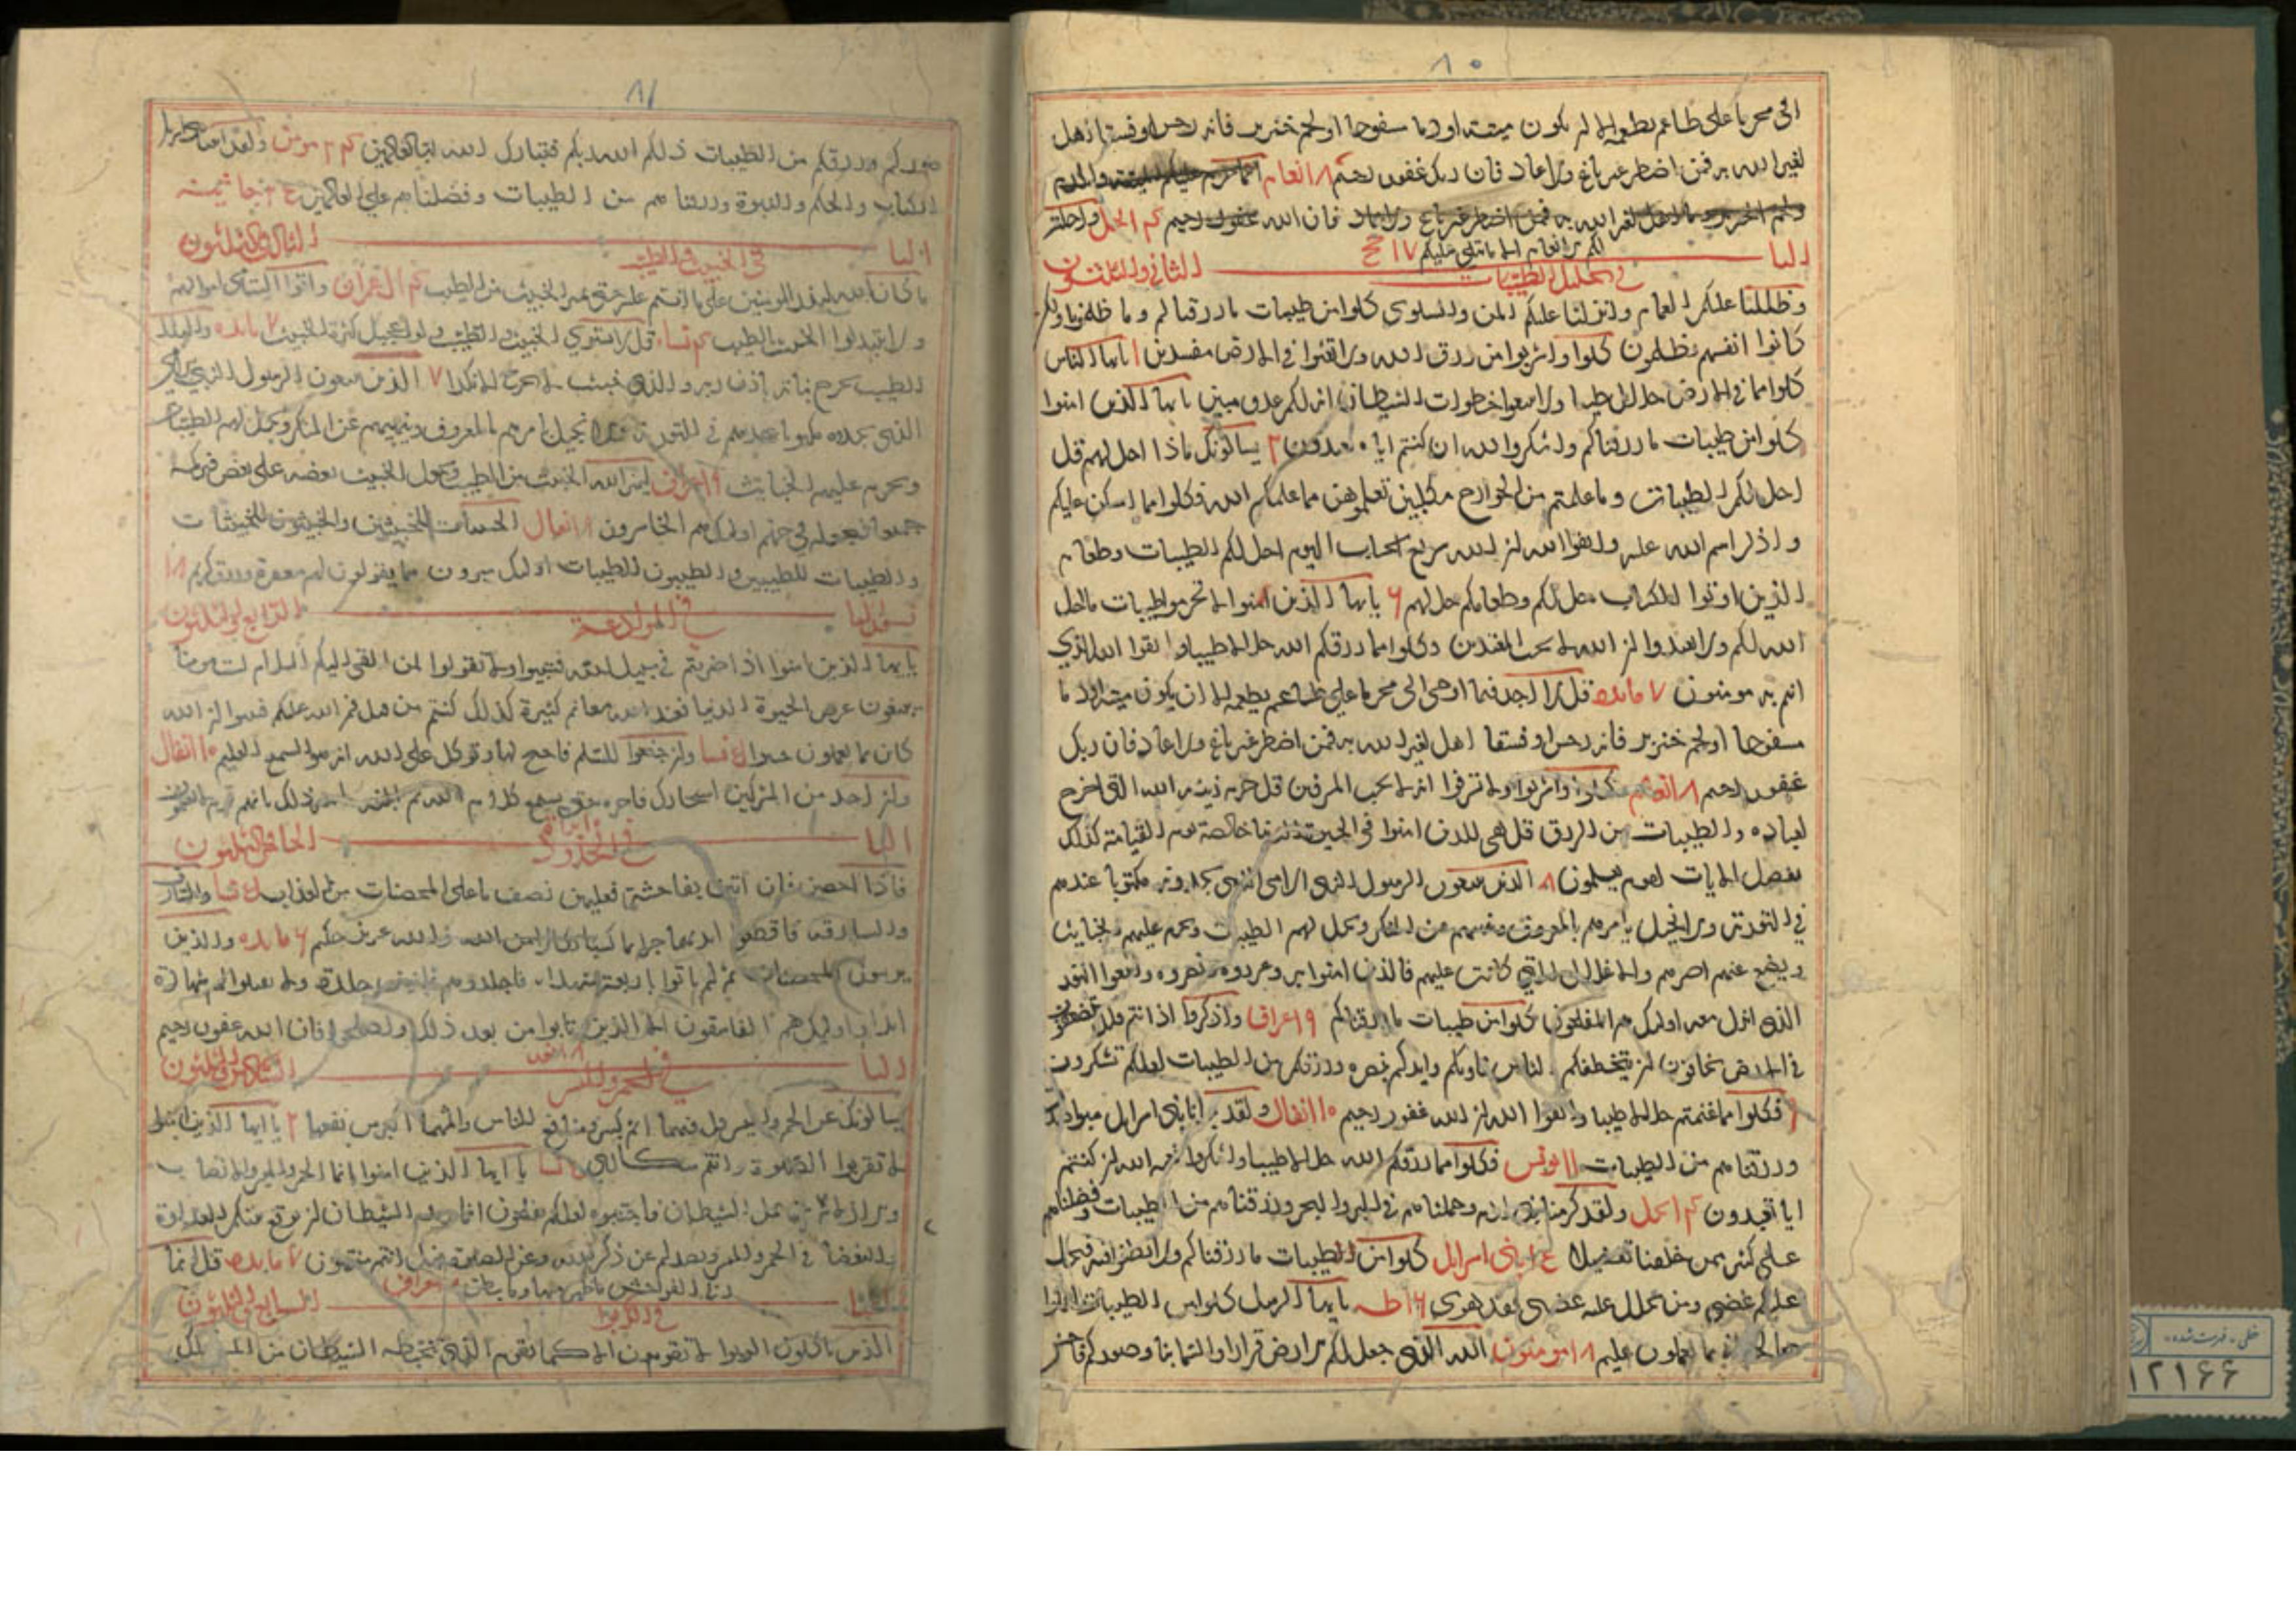 ٨٠
الی محرما علی طاعم یطعمه الا ان یکون میتة او دما مسفوحا او لحم خنزیر فانه رجس او فسقا اهل
لغیر الله به فمن اضطر غیر باغ ولا عاد فان ربک غفور رحیم ٨ انعام انما حرم علیکم المیتة والدم
ولحم الخنزیر وما اهل لغیر الله به فمن اضطر غیر باغ ولا عاد فان الله غفور رحیم النحل واحلت
لکم الانعام الا ما یتلی علیکم ١٧ حج
الباب الثانی والثلثون
فی تحلیل الطیبات
وظللنا علیکم الغمام وانزلنا علیکم المن والسلوی کلوا من طیبات ما رزقناکم وما ظلمونا ولکن
کانوا انفسهم یظلمون کلوا واشربوا من رزق الله ولا تعثوا فی الارض مفسدین ١ یا ایها الناس
کلوا مما فی الارض حلالا طیبا ولا تتبعوا خطوات الشیطان انه لکم عدو مبین یا ایها الذین امنوا
کلوا من طیبات ما رزقناکم واشکروا لله ان کنتم ایاه تعبدون ٢ یسالونک ماذا احل لهم قل
احل لکم الطیبات وما علمتم من الجوارح مکلبین تعلمونهن مما علمکم الله فکلوا مما امسکن علیکم
واذکر اسم الله علیه واتقوا الله ان الله سریع الحساب الیوم احل لکم الطیبات وطعام
الذین اوتوا الکتاب حل لکم وطعامکم حل لهم ۶ یا ایها الذین امنوا لا تحرموا طیبات ما احل
الله لکم ولا تعتدوا ان الله لا یحب المعتدین وکلوا مما رزقکم الله حلالا طیبا واتقوا الله الذی
انتم به مومنون ٧ مائده قل لا اجد فیما اوحی الی محرما علی طاعم یطعمه الا ان یکون میتة او دما
مسفوحا او لحم خنزیر فانه رجس او فسقا اهل لغیر الله به فمن اضطر غیر باغ ولا عاد فان ربک
غفور رحیم ٨ انعام کلوا واشربوا ولا تسرفوا انه لا یحب المسرفین قل من حرم زینة الله التی اخرج
لعباده والطیبات من الرزق قل هی للذین امنوا فی الحیوة الدنیا خالصة یوم القیامة کذلک
نفصل الایات لقوم یعلمون ٨ الذین یتبعون الرسول النبی الامی الذی یجدونه مکتوبا عندهم
فی التوریة والانجیل یامرهم بالمعروف وینهیهم عن المنکر ویحل لهم الطیبات ویحرم علیهم الخبایث
ویضع عنهم اصرهم والاغلال التی کانت علیهم فالذین امنوا به وعزروه ونصروه واتبعوا النور
الذی انزل معه اولئک هم المفلحون کلوا من طیبات ما رزقناکم ٩ اعراف واذکروا اذ انتم قلیل مستضعفون
فی الارض تخافون ان یتخطفکم الناس فاویکم وایدکم بنصره ورزقکم من الطیبات لعلکم تشکرون
فکلوا مما غنمتم حلالا طیبا واتقوا الله ان الله غفور رحیم ١٠ انفال ولقد بوانا بنی اسرائیل مبوا
ورزقناهم من الطیبات ١١ یونس فکلوا مما رزقکم الله حلالا طیبا واشکروا نعمة الله ان کنتم
ایاه تعبدون النحل ولقد کرمنا بنی ادم وحملناهم فی البر والبحر ورزقناهم من الطیبات وفضلناهم
علی کثیر ممن خلقنا تفضیلا بنی اسرائیل کلوا من طیبات ما رزقناکم ولا تطغوا فیه فیحل
علیکم غضبی ومن یحلل علیه غضبی فقد هوی ١۶ طه یا ایها الرسل کلوا من الطیبات واعملوا
صالحا انی بما تعملون علیم ١٨ مومنون الله الذی جعل لکم الارض قرارا والسماء بناء وصورکم فاحسن
٨١
صورکم ورزقکم من الطیبات ذلکم الله ربکم فتبارک الله رب العالمین مومن ولقد اتینا بنی اسرائیل
الکتاب والحکم والنبوة ورزقناهم من الطیبات وفضلناهم علی العالمین جاثیة
الباب الثالث والثلثون
فی الخبیث والطیب
ما کان الله لیذر المومنین علی ما انتم علیه حتی یمیز الخبیث من الطیب ال عمران واتوا الیتامی اموالهم
ولا تتبدلوا الخبیث بالطیب نساء قل لا یستوی الخبیث والطیب ولو اعجبک کثرة الخبیث ٧ مائده والبلد
الطیب یخرج نباته باذن ربه والذی خبث لا یخرج الا نکدا ٧ الذین یتبعون الرسول النبی الامی
الذی یجدونه مکتوبا عندهم فی التوریة والانجیل یامرهم بالمعروف وینهیهم عن المنکر ویحل لهم الطیبات
ویحرم علیهم الخبائث ٩ اعراف لیمیز الله الخبیث من الطیب ویجعل الخبیث بعضه علی بعض فیرکمه
جمیعا فیجعله فی جهنم اولئک هم الخاسرون انفال الخبیثات للخبیثین والخبیثون للخبیثات
والطیبات للطیبین والطیبون للطیبات اولئک مبرؤن مما یقولون لهم مغفرة ورزق کریم ١٨
الباب الرابع والثلثون
یا ایها الذین امنوا اذا ضربتم فی سبیل الله فتبینوا ولا تقولوا لمن القی الیکم السلام لست مومنا
تبتغون عرض الحیوة الدنیا فعند الله مغانم کثیرة کذلک کنتم من قبل فمن الله علیکم فتبینوا ان الله
کان بما تعملون خبیرا نسا وان جنحوا للسلم فاجنح لها وتوکل علی الله انه هو السمیع العلیم ١٠ انفال
وان احد من المشرکین استجارک فاجره حتی یسمع کلام الله ثم ابلغه مامنه ذلک بانهم قوم لا یعلمون
الباب الخامس والثلثون
فی الحدود
فاذا احصن فان اتین بفاحشة فعلیهن نصف ما علی المحصنات من العذاب نسا والسارق
والسارقة فاقطعوا ایدیهما جزاء بما کسبا نکالا من الله والله عزیز حکیم ۶ مائده والذین
یرمون المحصنات ثم لم یاتوا باربعة شهداء فاجلدوهم ثمانین جلدة ولا تقبلوا لهم شهادة
ابدا واولئک هم الفاسقون الا الذین تابوا من بعد ذلک واصلحوا فان الله غفور رحیم
١٨ النور
الباب السادس والثلثون
فی الخمر والمیسر
یسالونک عن الخمر والمیسر قل فیهما اثم کبیر ومنافع للناس واثمهما اکبر من نفعهما ٢ یا ایها الذین امنوا
لا تقربوا الصلوة وانتم سکاری نسا یا ایها الذین امنوا انما الخمر والمیسر والانصاب
والازلام رجس من عمل الشیطان فاجتنبوه لعلکم تفلحون انما یرید الشیطان ان یوقع بینکم العداوة
والبغضاء فی الخمر والمیسر ویصدکم عن ذکر الله وعن الصلوة فهل انتم منتهون ٧ مائده قل انما
حرم ربی الفواحش ما ظهر منها وما بطن اعراف
الباب السابع والثلثون
فی الربوا
الذین یاکلون الربوا لا یقومون الا کما یقوم الذی یتخبطه الشیطان من المس ذلک
خطی - فهرست شده
١٢١۶۶